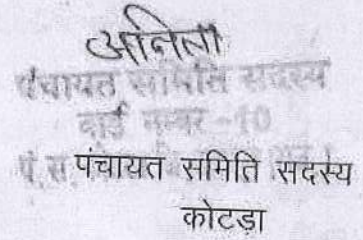 अनिता
पंचायत समिति सदस्य
वार्ड नम्बर -10
पं.स.
पंचायत समिति सदस्य
कोटड़ा